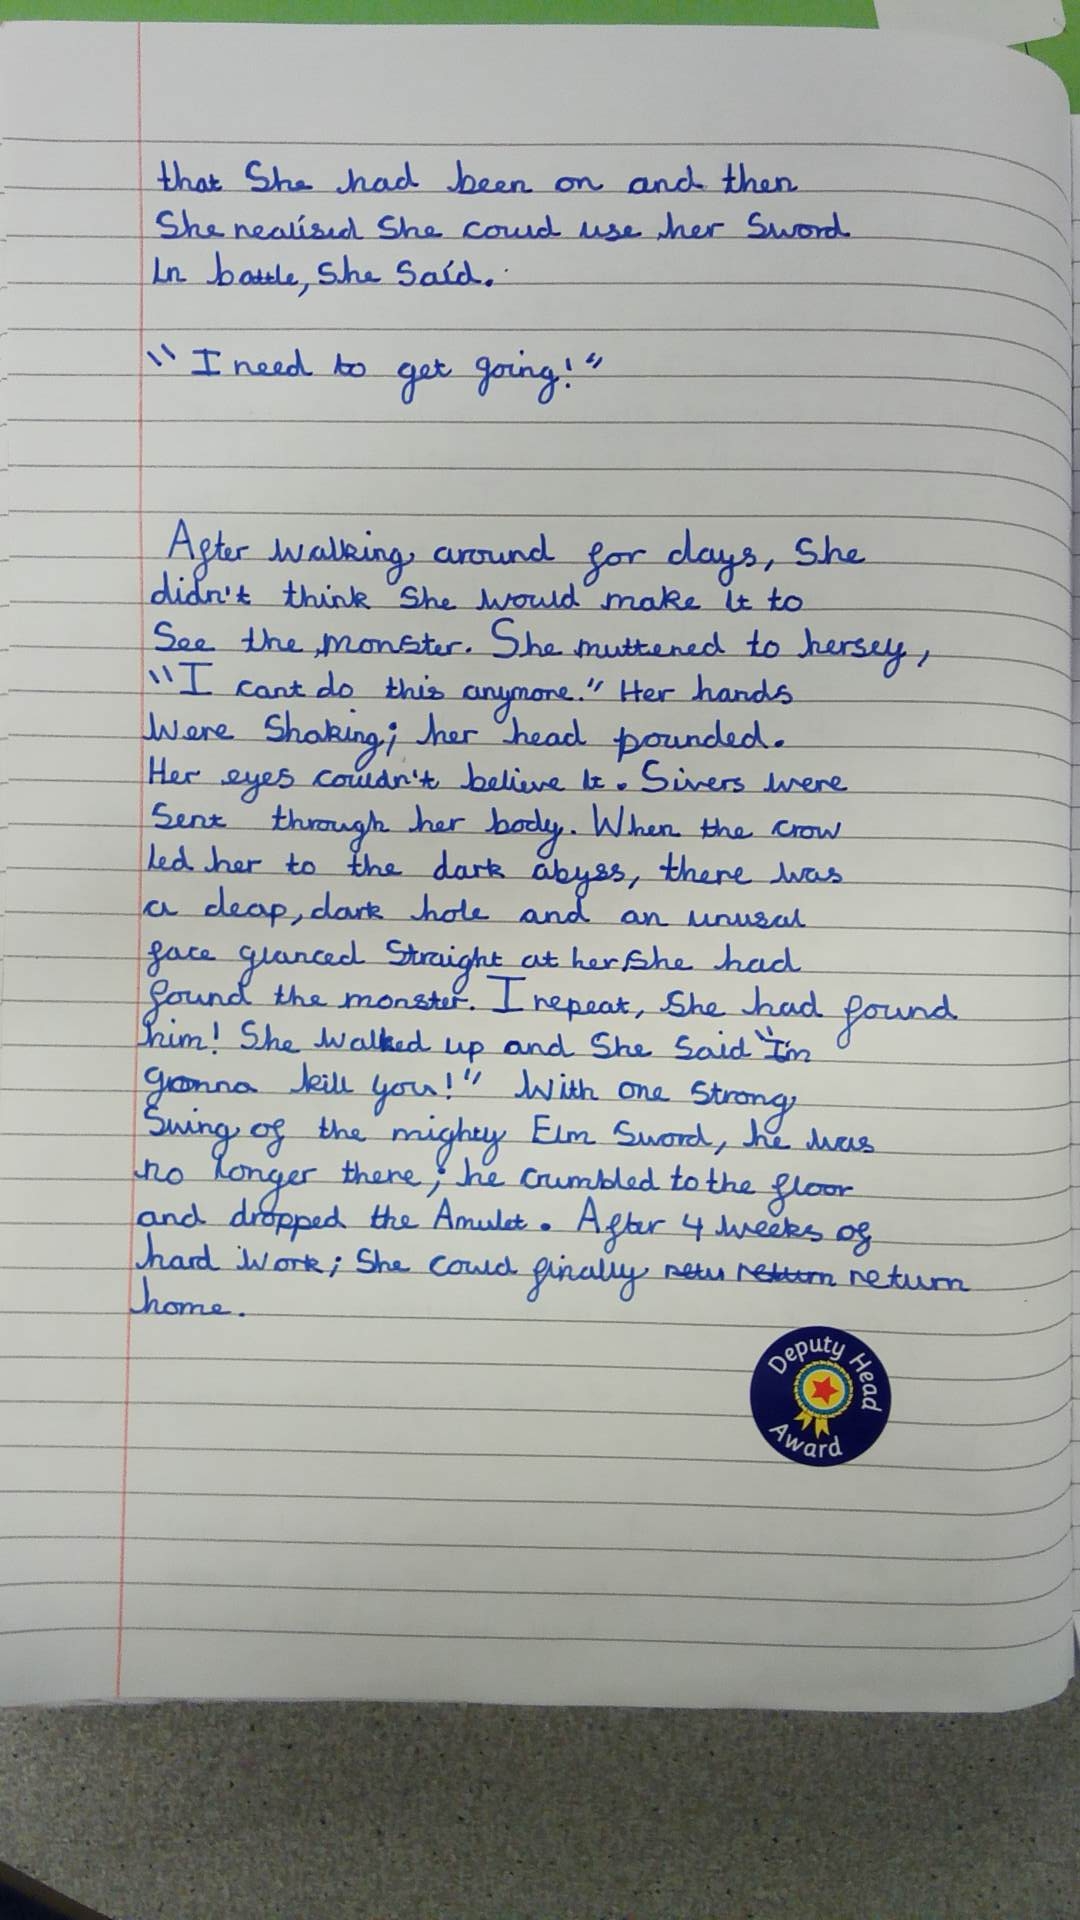 that She had been on and then
She realised She could use her Sword
In battle, She Said.
"I need to get going!"
After walking around for days, She
didn't think She would make It to
See the monster. She muttered to hersey,
"I cant do this anymore." Her hands
Were Shaking; her head pounded.
Her eyes couldn't believe It. Sivers were
Sent through her body. When the crow
led her to the dark abyss, there was
a deap, dark hole and an unusal
face glanced Straight at her, She had
found the monster. I repeat, She had found
him! She walked up and She Said "I'm
gonna kill you!" With one Strong
Swing of the mighty Elm Sword, he was
no longer there; he crumbled to the floor
and dropped the Amulet. After 4 weeks of
hard Work; She could finally retu return return
home.
Deputy Head
Award